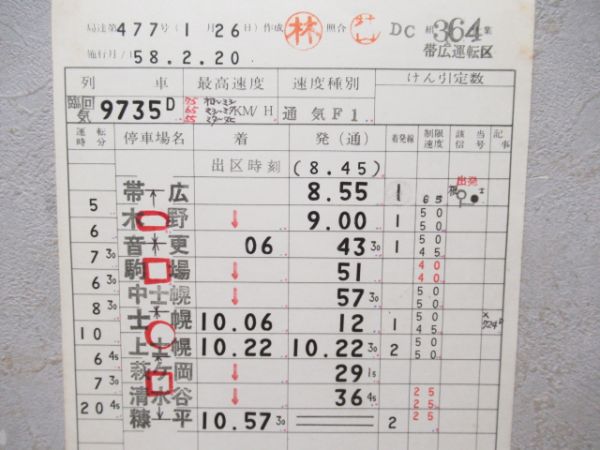 局達第477号(1月26日)作成 林 照合 DC 364
施行月/158.2.20 帯広運転区
列 車 最高速度 速度種別 けん引定数
臨回気 9735D 75 65 55 KM/H 通気F1
運転時分 停車場名 着 発(通) 着発線 制限速度 該当信号 記事
出区時刻 (8.45)
出発
帯広 8.55 1 65
5 木野 ↓ 9.00 1 50 50
6 音更 06 43 30 1 50 45
7 30 駒場 ↓ 51 40 40
6 中士幌 ↓ 57 30 50 50
8 30 士幌 10.06 12 1 50 45 ×924D
10 上士幌 10.22 10.22 30 2 50 50
6 45 萩ヶ岡 ↓ 29 15
7 30 清水谷 ↓ 36 45 25 25
20 45 糠平 10.57 30 2 25